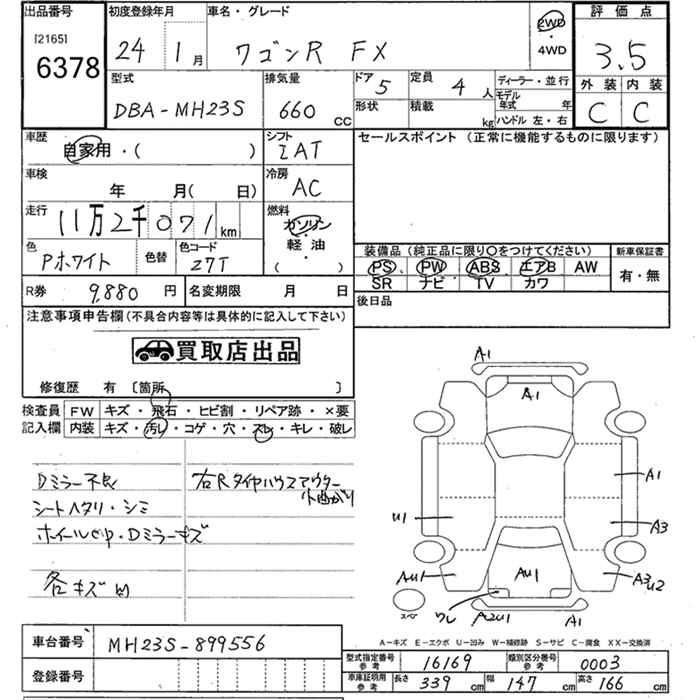 出品番号 初度登録年月 車名・グレード 評価点
[2165]
6378
24 1月 ワゴンR FX 2WD
・
4WD
3.5
型式 排気量 ドア 5 定員 4人 ディーラー・並行 外装 内装
DBA-MH23S 660 CC 形状 積載 kg モデル年式 年 ハンドル 左・右 C C
車歴 シフト セールスポイント (正常に機能するものに限ります)
自家用・( ) IAT
車検 冷房
年 月( 日) AC
走行 燃料
11万2千071km ガソリン
・
軽油
・
( )
色 色替 色コード 装備品 (純正品に限り〇をつけてください) 新車保証書
Pホワイト Z7T PS PW ABS エアB AW 有・無
SR ナビ TV カワ
R券 9,880円 名変期限 月 日 後日品
注意事項申告欄(不具合内容等は具体的に記入して下さい)
買取店出品
修復歴 有 〔箇所 〕
検査員 FW キズ・飛石・ヒビ割・リペア跡・×要
記入欄 内装 キズ・汚レ・コゲ・穴・スレ・キレ・破レ
Dミラー不良 右Rタイヤハウスアウター
小曲がり
シートヘタリ・シミ
Dミラーキズ
各キズ凹
A1
A1
A1
U1 A3
AU1 AU1 A3 U2
スペ ワレ A2U1 A1
A-キズ E-エクボ U-凹み W-補修跡 S-サビ C-腐食 XX-交換済
車台番号 MH23S-899556
型式指定番号 参考 16169 類別区分番号 参考 0003
登録番号 車庫証明用 参考 長さ 339 cm 幅 147 cm 高さ 166 cm